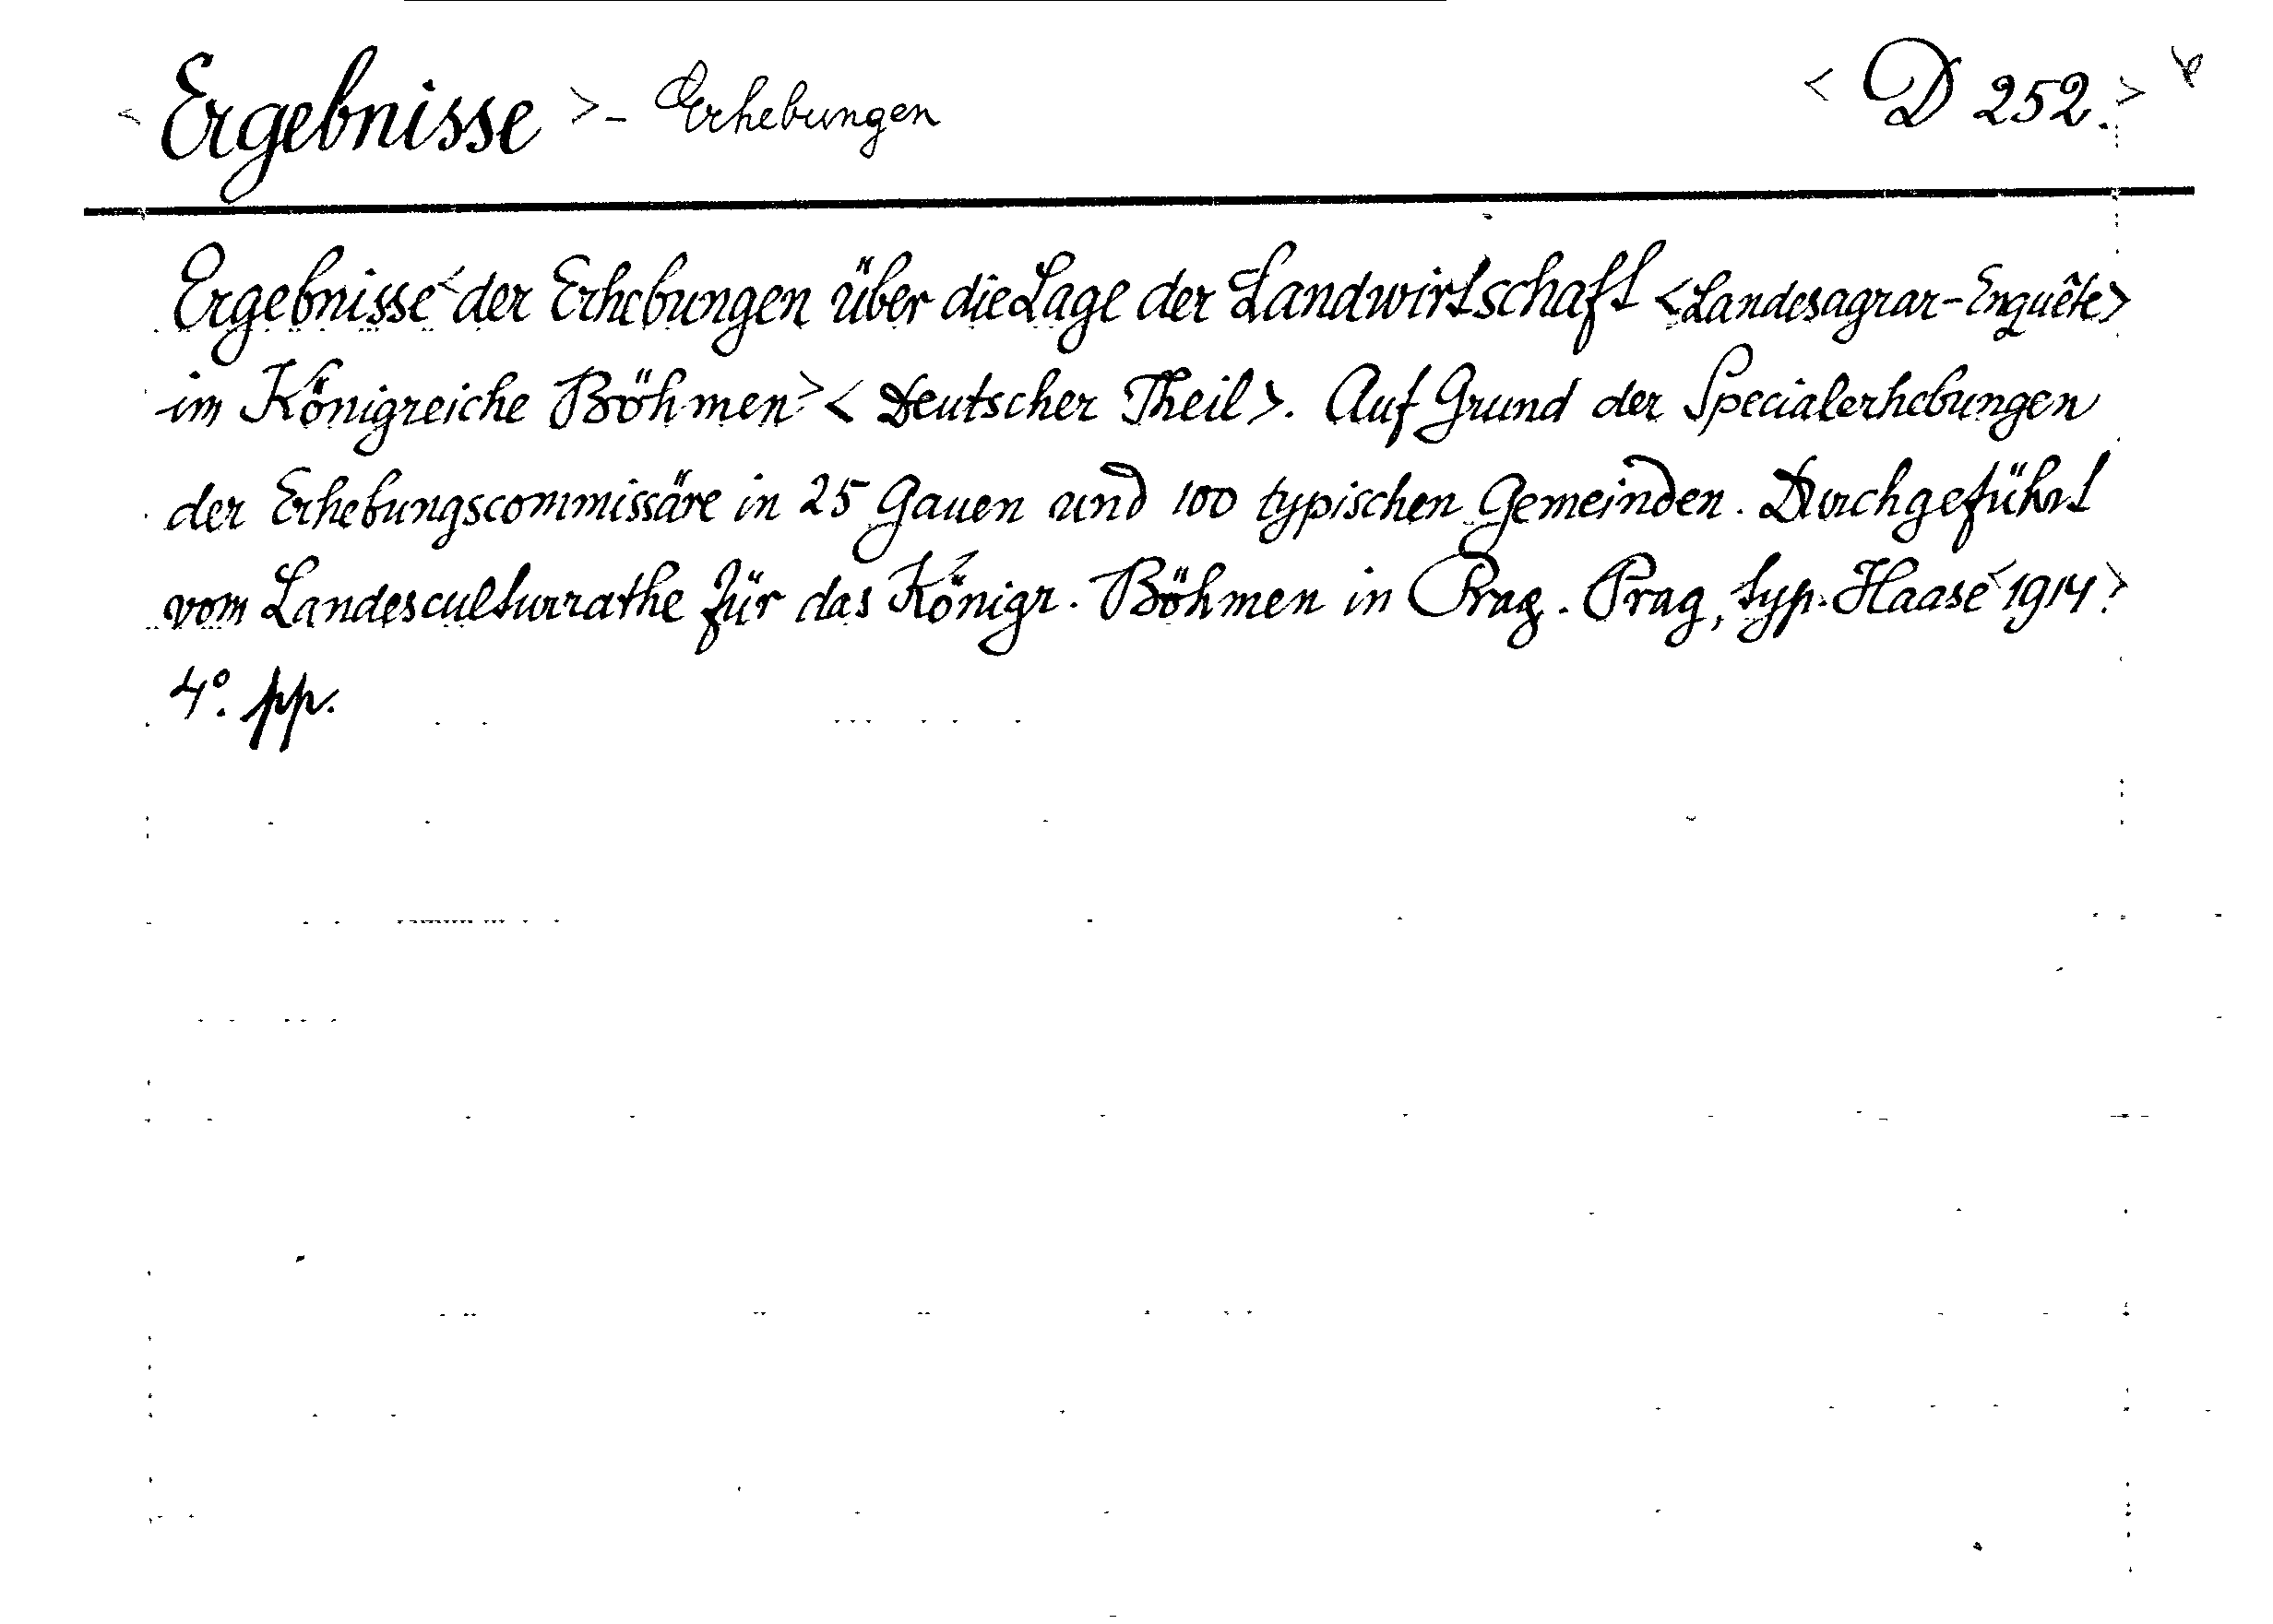 < Ergebnisse > - Erhebungen < D 252. >
Ergebnisse < der Erhebungen über die Lage der Landwirtschaft < Landesagrar-Enquête >
im Königreiche Böhmen > < Deutscher Theil >. Auf Grund der Specialerhebungen
der Erhebungscommissäre in 25 Gauen und 100 typischen Gemeinden. Durchgeführt
vom Landesculturrathe für das Königr. Böhmen in Prag. Prag, typ. Haase < 1914 >
4º. pp.